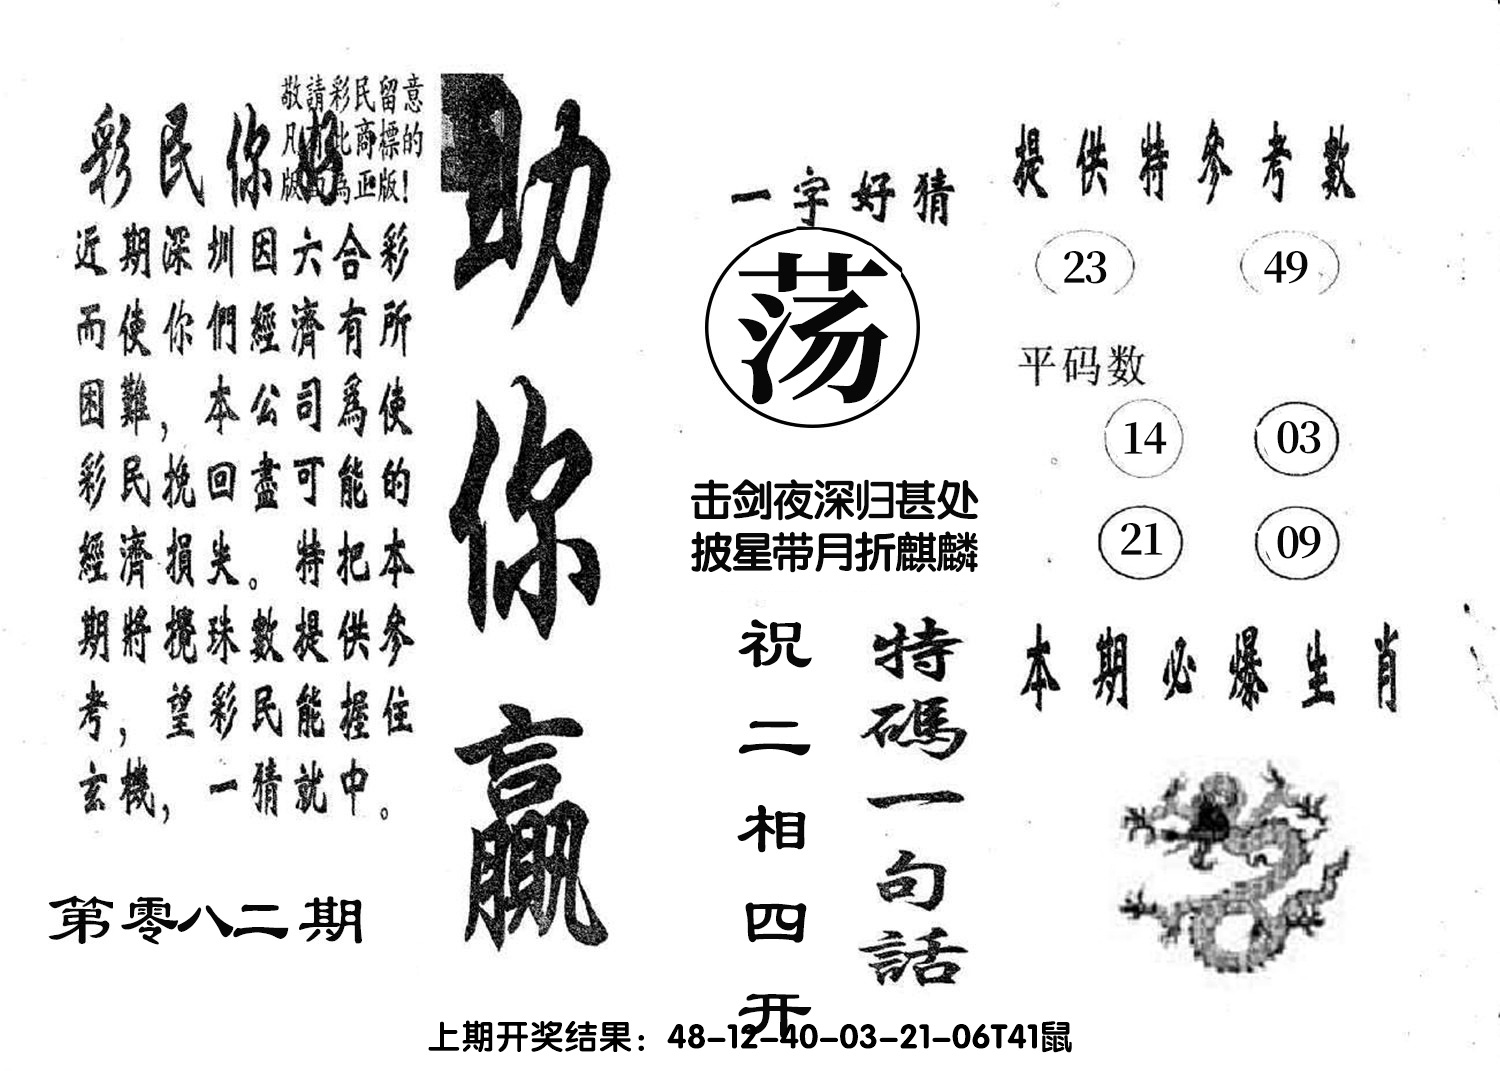 敬請彩民留意
凡有此商標的
版面為正版！
彩民你好
近期深圳因六合彩
而使你們經濟有所
困難，本公司爲使
彩民挽回盡可能的
經濟損失。特把本
期將攪珠數提供參
考，望彩民能握住
玄機，一猜就中。
第零八二期
助你贏
一字好猜
荡
击剑夜深归甚处
披星带月折麒麟
特碼一句話
祝二相四开
提供特參考數
23 49
平码数
14 03
21 09
本期必爆生肖
上期开奖结果：48-12-40-03-21-06T41鼠